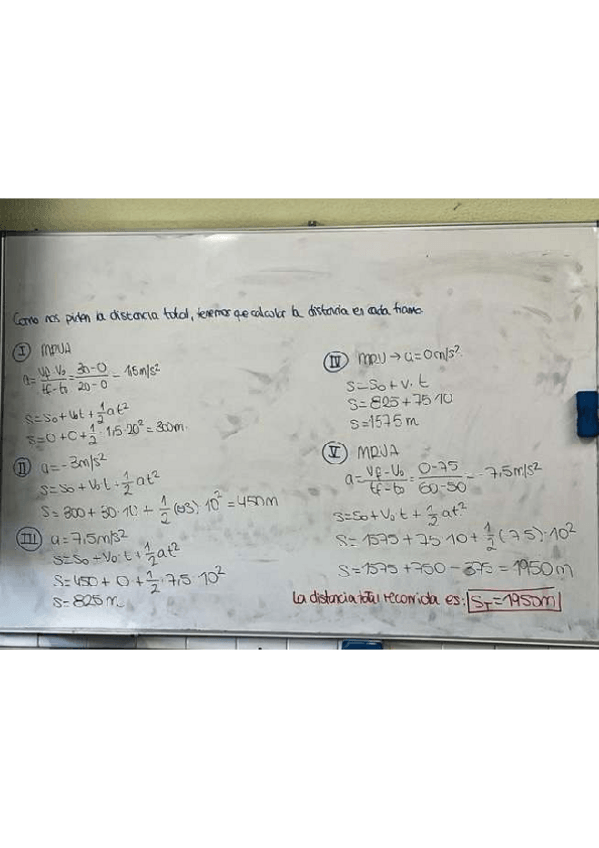 Como nos piden la distancia total, tenemos que calcular la distancia es cada tramo.
I MRUA
a = vf-v0/tf-t0 = 30-0/20-0 = 1,5m/s²
s = s0 + v0t + 1/2 at²
s = 0 + 0 + 1/2 · 1,5 · 20² = 300m.
II a = -3m/s²
s = s0 + v0·t + 1/2 at²
s = 300 + 30·10 + 1/2 (-3)·10² = 450m
III a = 7,5m/s²
s = s0 + v0·t + 1/2 at²
s = 450 + 0 + 1/2 · 7,5 · 10²
s = 825m
IV MRU → a = 0m/s²
s = s0 + v·t
s = 825 + 75·10
s = 1575 m
V MRUA
a = vf-v0/tf-t0 = 0-75/60-50 = -7,5m/s²
s = s0 + v0·t + 1/2 at²
s = 1575 + 75·10 + 1/2 (7.5)·10²
s = 1575 + 750 - 375 = 1950m
La distancia total recorrida es: ST = 1950m